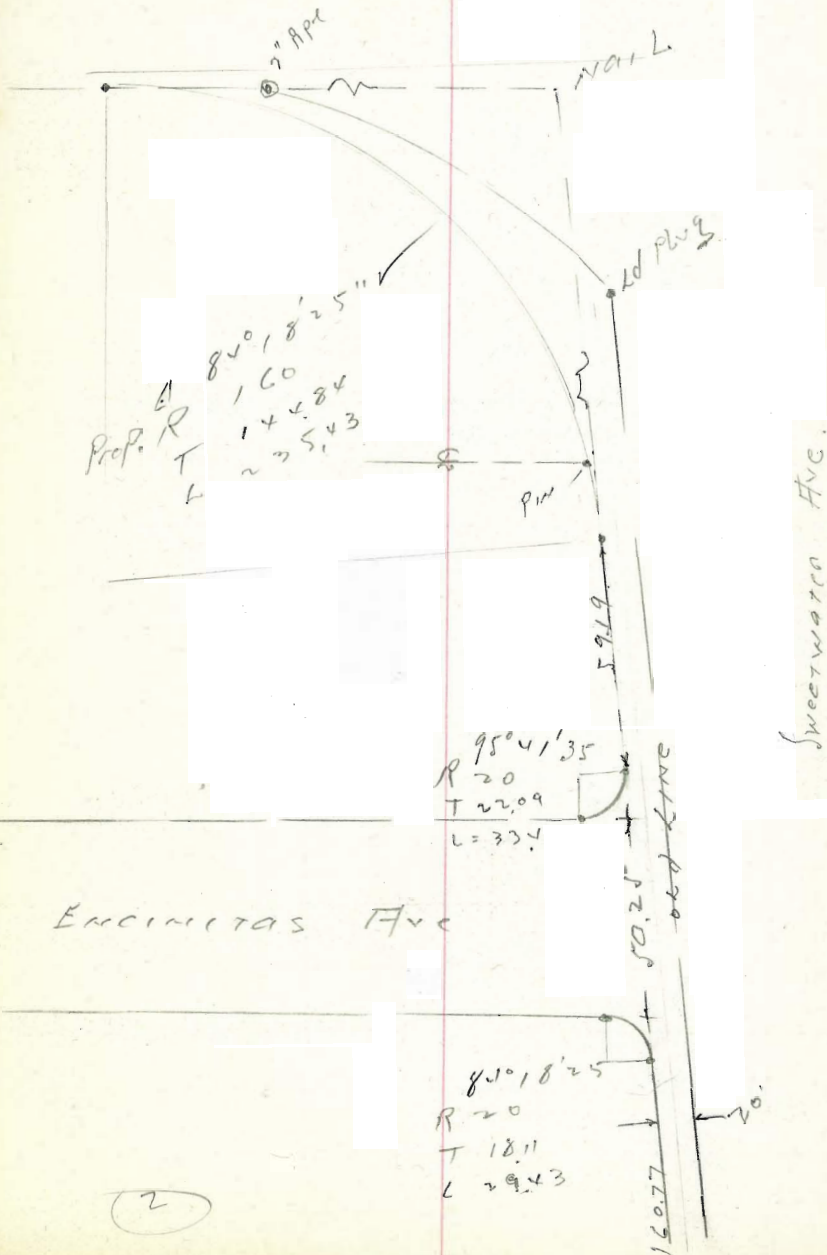 2" Pipe
Nail
Ld Plug
Δ 84° 18' 25"
Prop. R 160
T 144.84
L 235.43
PIN
59.19
Sweetwater Ave.
95° 41' 35
R 20
T 22.09
L = 33.4
old LINE
50.25
Encinitas Ave
84° 18' 25
R 20
T 18.11
L 29.43
20.
160.77
2